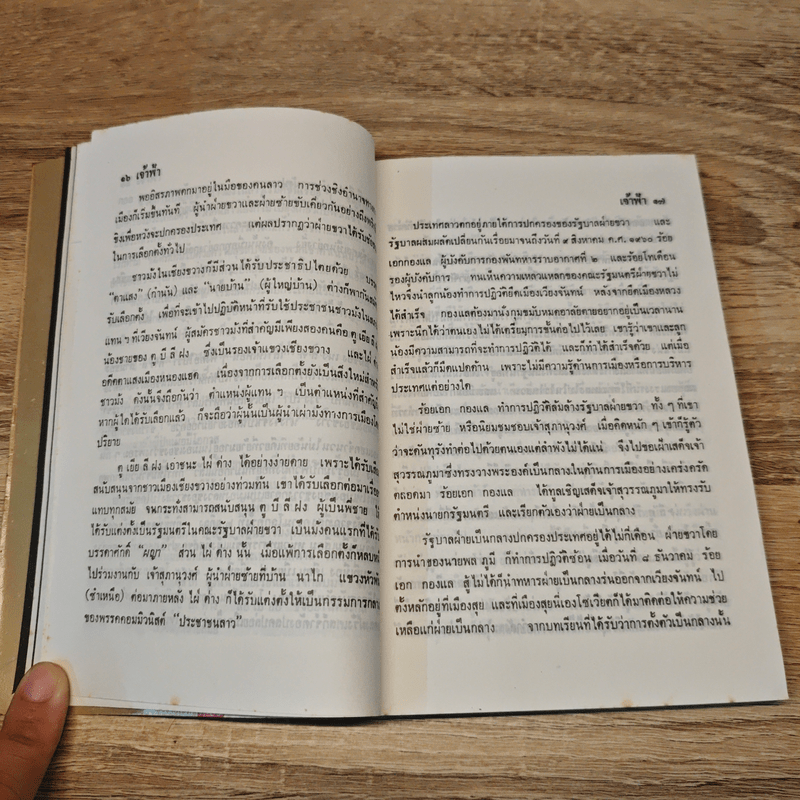 ๑๖ เจ้าฟ้า
พออิสรภาพตกมาอยู่ในมือของคนลาว การช่วงชิงอำนาจทาง
เมืองก็เริ่มขึ้นทันที ผู้นำฝ่ายขวาและฝ่ายซ้ายขับเคี่ยวกันอย่างถึง
ชิงเพื่อหวังจะปกครองประเทศ แต่ผลปรากฏว่าฝ่ายขวาได้รับ
ในการเลือกตั้งทั่วไป
ชาวม้งในเชียงขวางก็มีส่วนได้รับประชาธิปไตยด้วย
"ตาแสง" (กำนัน) และ "นายบ้าน" (ผู้ใหญ่บ้าน) ต่างก็พากัน
รับเลือกตั้ง เพื่อที่จะเข้าไปปฏิบัติหน้าที่รับใช้ประชาชนชาวม้งใน
แทน ๆ ที่เวียงจันทน์ ผู้สมัครชาวม้งที่สำคัญมีเพียงสองคนคือ ตู เยีย
น้องชายของ ตู บี ลี ฝง ซึ่งเป็นรองเจ้าแขวงเชียงขวาง และ ไผ่
อดีตตาแสงเมืองหนองแฮด เนื่องจากการเลือกตั้งยังเป็นสิ่งใหม่สำหรับ
ชาวม้ง ดังนั้นจึงถือกันว่า ตำแหน่งผู้แทน ๆ เป็นตำแหน่งที่สำคัญ
หากผู้ใดได้รับเลือกแล้ว ก็จะถือว่าผู้นั้นเป็นผู้นำเผ่าม้งทางการเมืองโดย
ปริยาย
ตู เยีย ลี ฝง เอาชนะ ไผ่ ด่าง ได้อย่างง่ายดาย เพราะได้รับ
สนับสนุนจากชาวเมืองเชียงขวางอย่างท่วมท้น เขาได้รับเลือกต่อมาเรื่อย
แทบทุกสมัย จนกระทั่งสามารถสนับสนุน ตู บี ลี ฝง ผู้เป็นพี่ชาย
ได้รับแต่งตั้งเป็นรัฐมนตรีในคณะรัฐบาลฝ่ายขวา เป็นม้งคนแรกที่ได้รับ
บรรดาศักดิ์ "พญา" ส่วน ไผ่ ด่าง นั้น เมื่อแพ้การเลือกตั้งก็หลบหนี
ไปร่วมงานกับ เจ้าสุภานุวงศ์ ผู้นำฝ่ายซ้ายที่บ้าน นาไก แขวงหัวพัน
(ซำเหนือ) ต่อมาภายหลัง ไผ่ ด่าง ก็ได้รับแต่งตั้งให้เป็นกรรมการกลาง
ของพรรคคอมมิวนิสต์ "ประชาชนลาว"
เจ้าฟ้า ๑๗
ประเทศลาวตกอยู่ภายใต้การปกครองของรัฐบาลฝ่ายขวา และ
รัฐบาลผสมผลัดเปลี่ยนกันเรื่อยมาจนถึงวันที่ ๙ สิงหาคม ค.ศ. ๑๙๖๐ ร้อย
เอกกองแล ผู้บังคับการกองพันทหารราบอากาศที่ ๒ และร้อยโทเดือน
รองผู้บังคับการ ทนเห็นความเหลวแหลกของคณะรัฐมนตรีฝ่ายขวาไม่
ไหวจึงนำลูกน้องทำการปฏิวัติยึดเมืองเวียงจันทน์ หลังจากยึดเมืองหลวง
ได้สำเร็จ กองแลต้องมานั่งกุมขมับหมดอาลัยตายอยากอยู่เป็นเวลานาน
เพราะนึกได้ว่าตนเองไม่ได้เตรียมการขั้นต่อไปไว้เลย เขารู้ว่าเขาและลูก
น้องมีความสามารถที่จะทำการปฏิวัติได้ และก็ทำได้สำเร็จด้วย แต่เมื่อ
สำเร็จแล้วก็มีแปดด้าน เพราะไม่มีความรู้ด้านการเมืองหรือการบริหาร
ประเทศแต่อย่างใด
ร้อยเอก กองแล ทำการปฏิวัติล้มล้างรัฐบาลฝ่ายขวา ทั้ง ๆ ที่เขา
ไม่ใช่ฝ่ายซ้าย หรือนิยมชมชอบเจ้าสุภานุวงศ์ เมื่อคิดหนัก ๆ เข้าก็รู้ตัว
ว่าจะดันทุรังทำต่อไปด้วยตนเองแต่ลำพังไม่ได้แน่ จึงไปขอเฝ้าเสด็จเจ้า
สุวรรณภูมาซึ่งทรงวางพระองค์เป็นกลางในด้านการเมืองอย่างเคร่งครัด
ตลอดมา ร้อยเอก กองแล ได้ทูลเชิญเสด็จเจ้าสุวรรณภูมาให้ทรงรับ
ตำแหน่งนายกรัฐมนตรี และเรียกตัวเองว่าฝ่ายเป็นกลาง
รัฐบาลฝ่ายเป็นกลางปกครองประเทศอยู่ได้ไม่กี่เดือน ฝ่ายขวาโดย
การนำของนายพล ภูมี ก็ทำการปฏิวัติซ้อน เมื่อวันที่ ๘ ธันวาคม ร้อย
เอก กองแล สู้ไม่ได้ก็นำทหารฝ่ายเป็นกลางร่นออกจากเวียงจันทน์ ไป
ตั้งหลักอยู่ที่เมืองสุย และที่เมืองสุยนี่เองโซเวียตก็ได้มาติดต่อให้ความช่วย
เหลือแก่ฝ่ายเป็นกลาง จากบทเรียนที่ได้รับว่าการตั้งตัวเป็นกลางนั้น